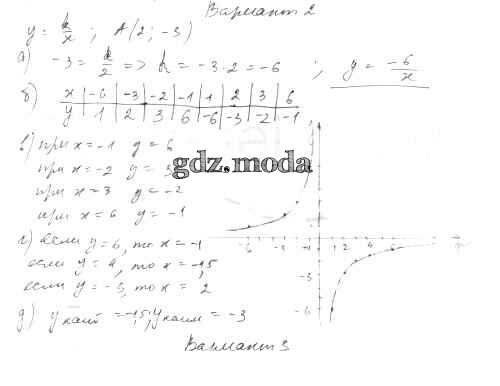 Вариант 2
y = k/x ; A(2; -3)
а) -3 = k/2 => k = -3·2 = -6 ; y = -6/x
б) x | -6 | -3 | -2 | -1 | 1 | 2 | 3 | 6
y | 1 | 2 | 3 | 6 | -6 | -3 | -2 | -1
в) при x = -1 y = 6
при x = -2 y = 3
при x = 3 y = -2
при x = 6 y = -1
gdz.moda
г) если y = 6, то x = -1
если y = 4, то x = -1,5
если y = -3, то x = 2
д) y наиб = -1,5; y наим = -3
-6 -4 -2 1 2 4 6
-3
-6
Вариант 3